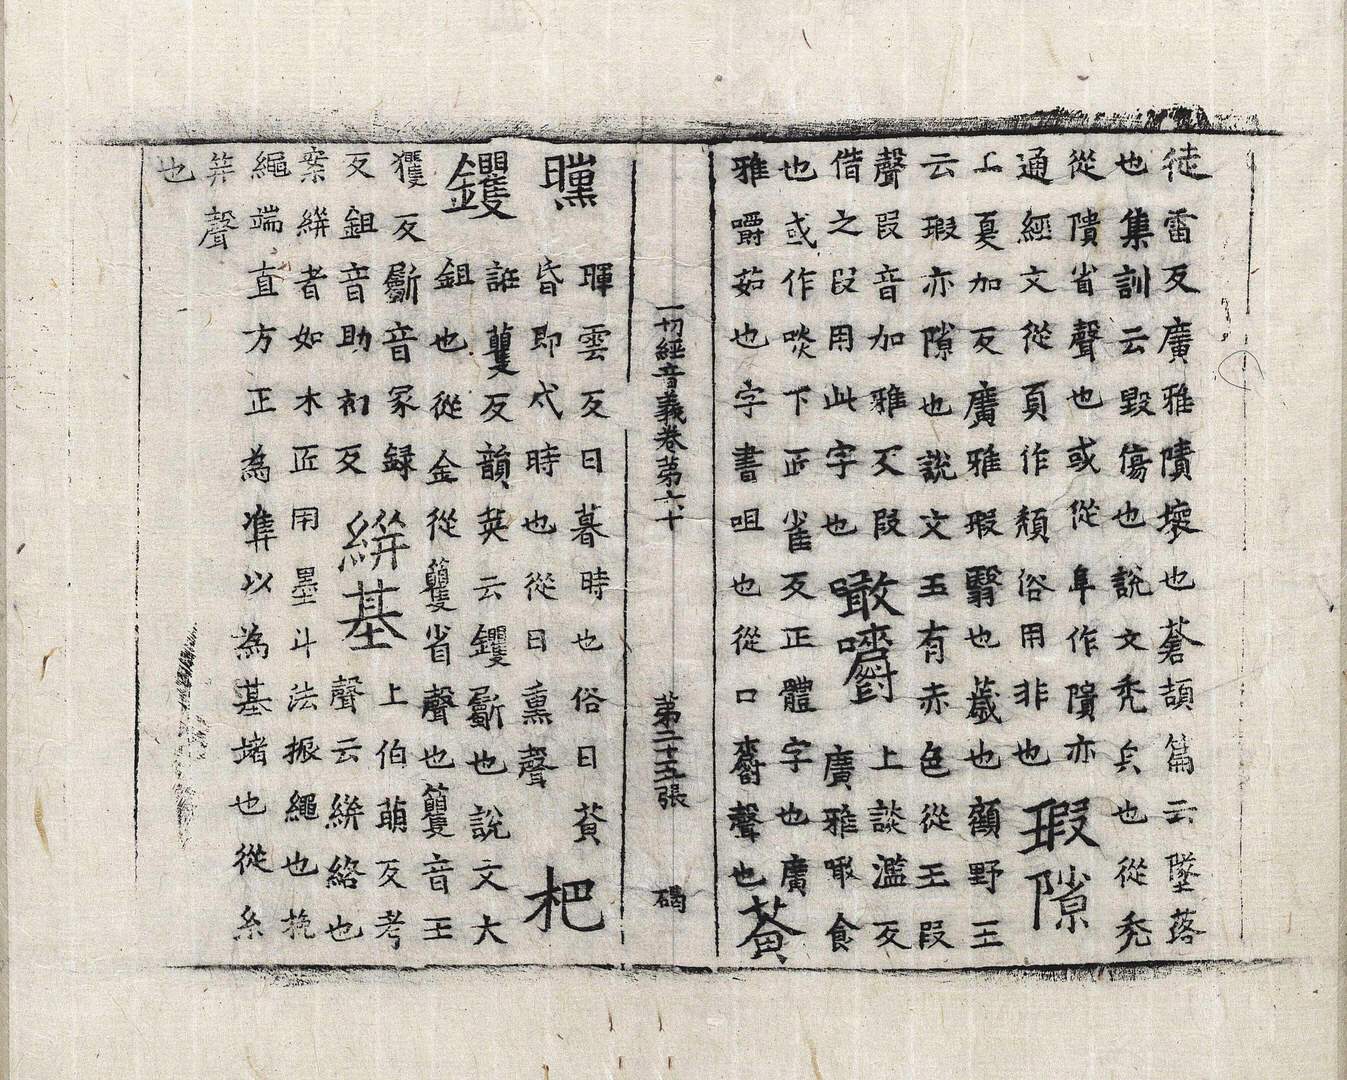 徒雷反廣雅隤壞也蒼頡篇云墜落
也集訓云毀傷也說文禿兵也從禿
從隤省聲也或從阜作隤亦
通經文從頁作頽俗用非也 瑕隙
上夏加反廣雅瑕翳也薉也顧野王
云瑕亦隙也說文玉有赤色從王叚
聲叚音加雅反叚 上談濫反
借之叚用此字也 噉嚼 廣雅噉食
也或作啖下匠雀反正體字也廣
雅嚼茹也字書咀也從口爵聲也 黃
一切經音義卷第六十 第二十五張 碣
曛 暉雲反日暮時也俗日黃
昏即弋時也從日熏聲 杷
钁 誑籰反韻英云钁斸也說文大
鉏也從金從籰省聲也籰音王
玃反斸音冢録 絣基 上伯萌反考
反鉏音助初反 聲云絣絡也
案絣者如木匠用墨斗法振繩也挽
繩端直方正為準以為基堵也從糸
笄聲
也